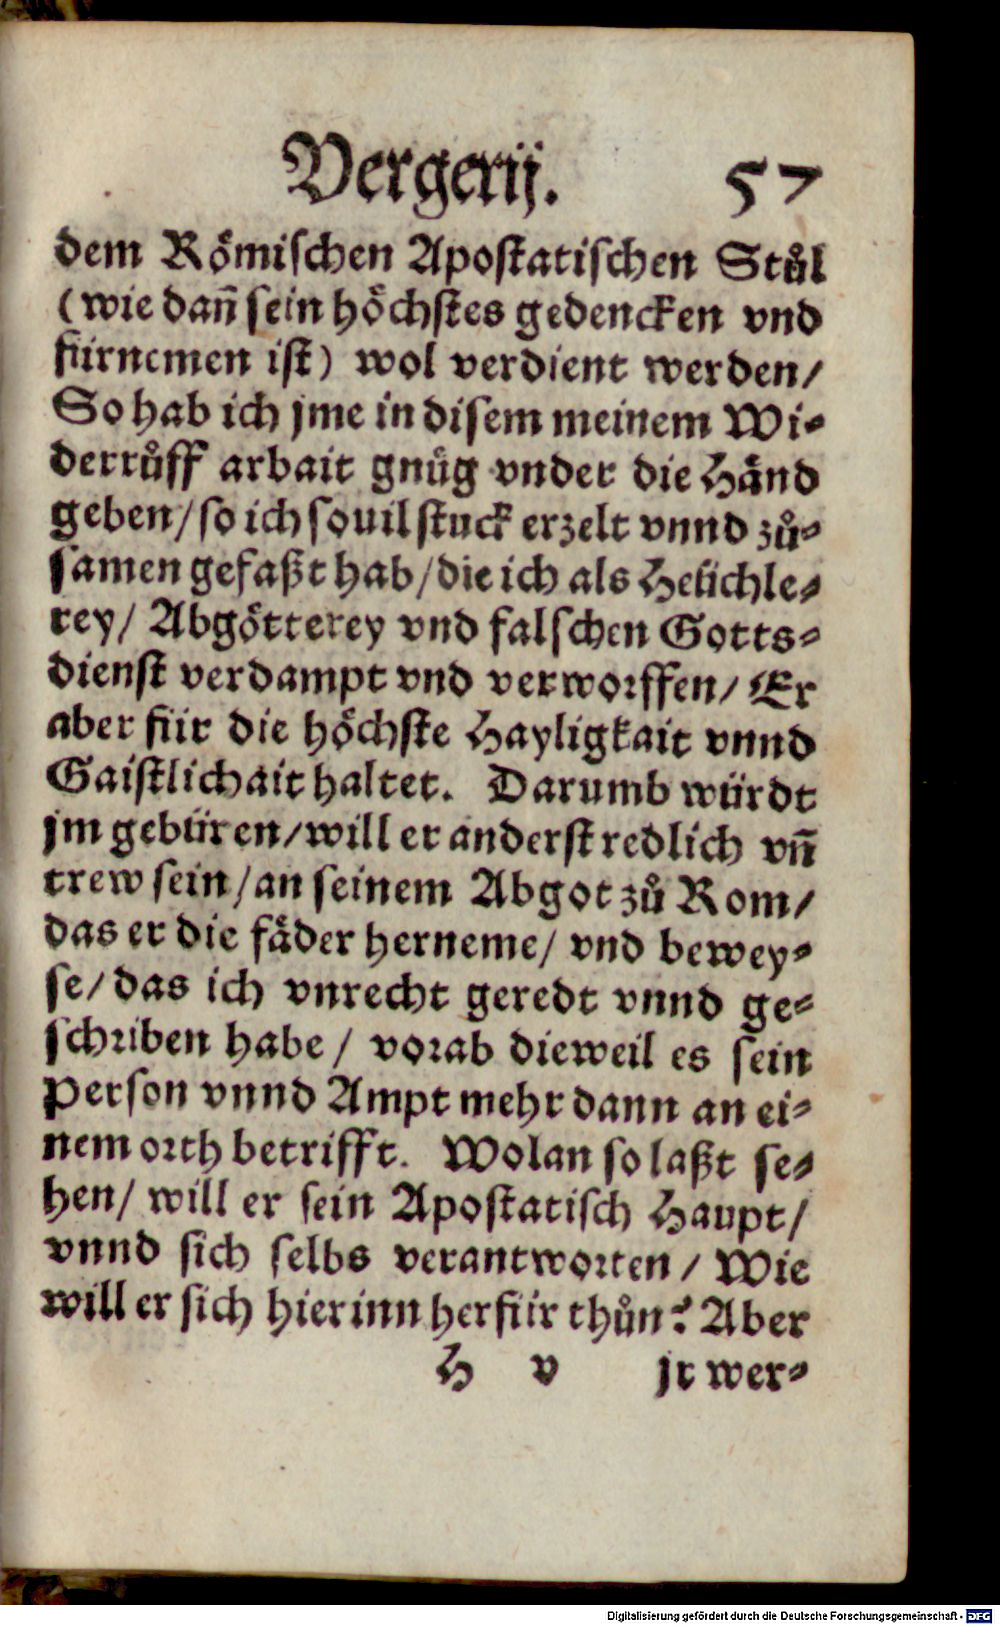 Vergerij. 57
dem Römischen Apostatischen Stůl
(wie dañ sein höchstes gedencken vnd
fürnemen ist) wol verdient werden/
So hab ich jme in disem meinem Wi-
derrůff arbait gnůg vnder die Händ
geben/ so ich souil stuck erzelt vnnd zů-
samen gefaßt hab/ die ich als Heüchle-
rey/ Abgötterey vnd falschen Gotts-
dienst verdampt vnd verworffen/ Er
aber für die höchste Hayligkait vnnd
Gaistlichait haltet. Darumb würdt
jm gebüren/ will er anderst redlich vñ
trew sein/ an seinem Abgot zů Rom/
das er die fäder herneme/ vnd bewey-
se/ das ich vnrecht geredt vnnd ge-
schriben habe/ vorab dieweil es sein
Person vnnd Ampt mehr dann an ei-
nem orth betrifft. Wolan so laßt se-
hen/ will er sein Apostatisch Haupt/
vnnd sich selbs verantworten/ Wie
will er sich hierinn herfür thůn? Aber
H v jr wer-
Digitalisierung gefördert durch die Deutsche Forschungsgemeinschaft - DFG